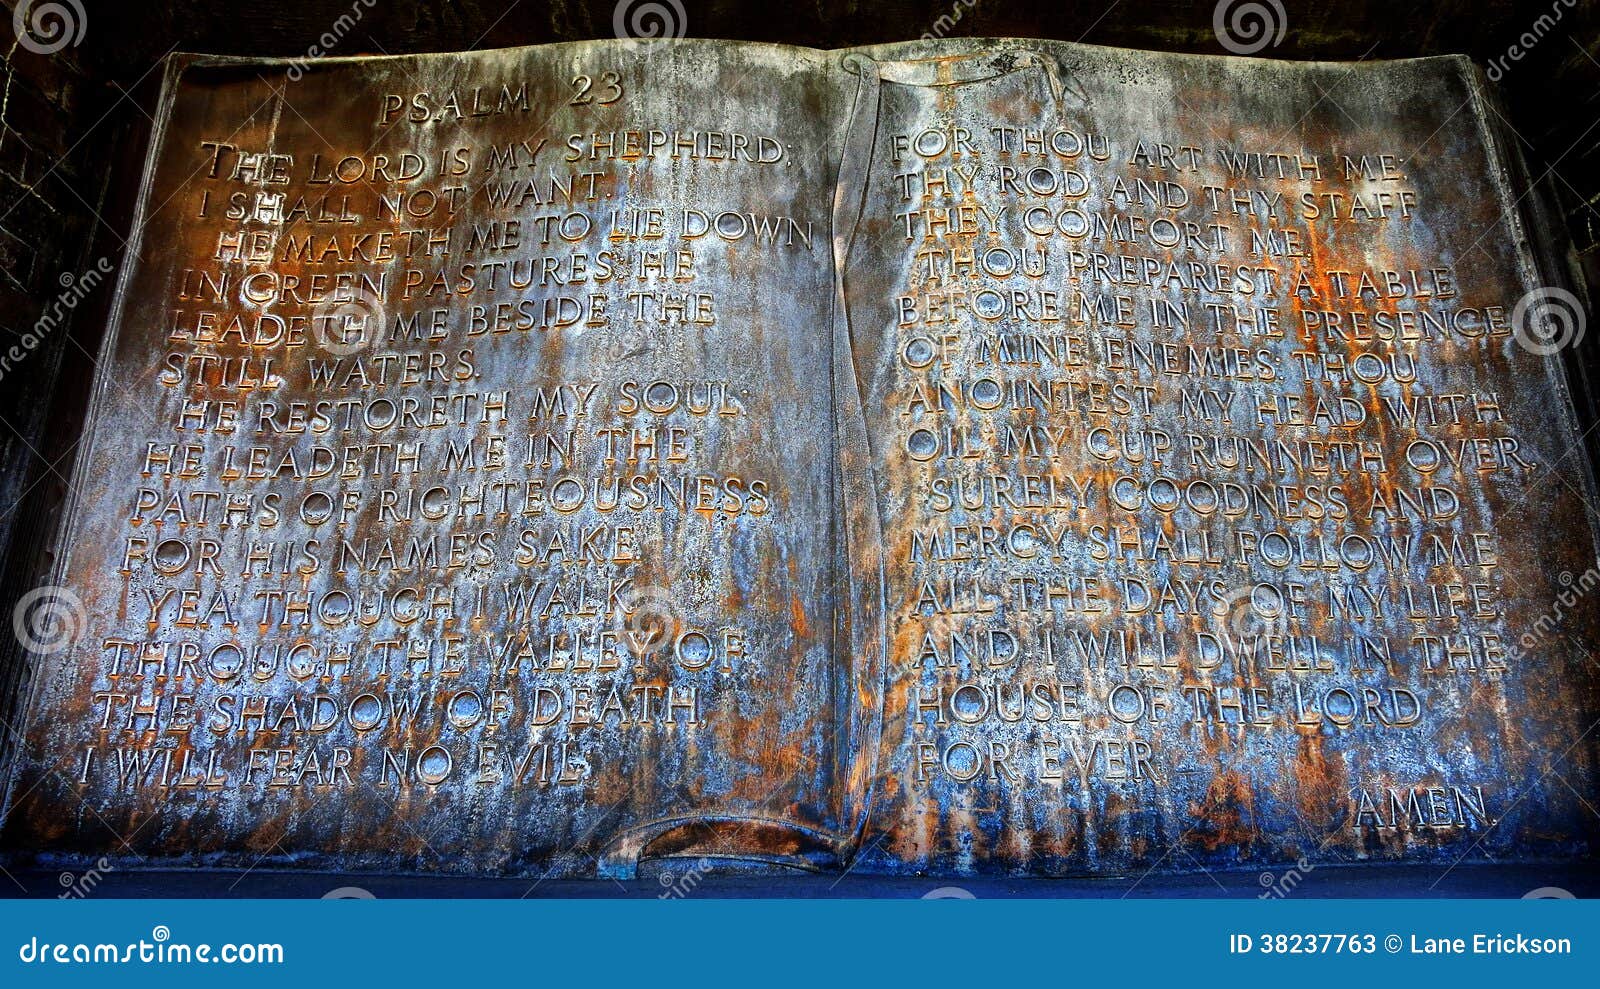 PSALM 23
THE LORD IS MY SHEPHERD;
I SHALL NOT WANT.
HE MAKETH ME TO LIE DOWN
IN GREEN PASTURES: HE
LEADETH ME BESIDE THE
STILL WATERS.
HE RESTORETH MY SOUL:
HE LEADETH ME IN THE
PATHS OF RIGHTEOUSNESS
FOR HIS NAME'S SAKE.
YEA THOUGH I WALK
THROUGH THE VALLEY OF
THE SHADOW OF DEATH,
I WILL FEAR NO EVIL:
FOR THOU ART WITH ME;
THY ROD AND THY STAFF
THEY COMFORT ME.
THOU PREPAREST A TABLE
BEFORE ME IN THE PRESENCE
OF MINE ENEMIES: THOU
ANOINTEST MY HEAD WITH
OIL MY CUP RUNNETH OVER.
SURELY GOODNESS AND
MERCY SHALL FOLLOW ME
ALL THE DAYS OF MY LIFE:
AND I WILL DWELL IN THE
HOUSE OF THE LORD
FOR EVER.
AMEN.
dreamstime.com
ID 38237763 © Lane Erickson